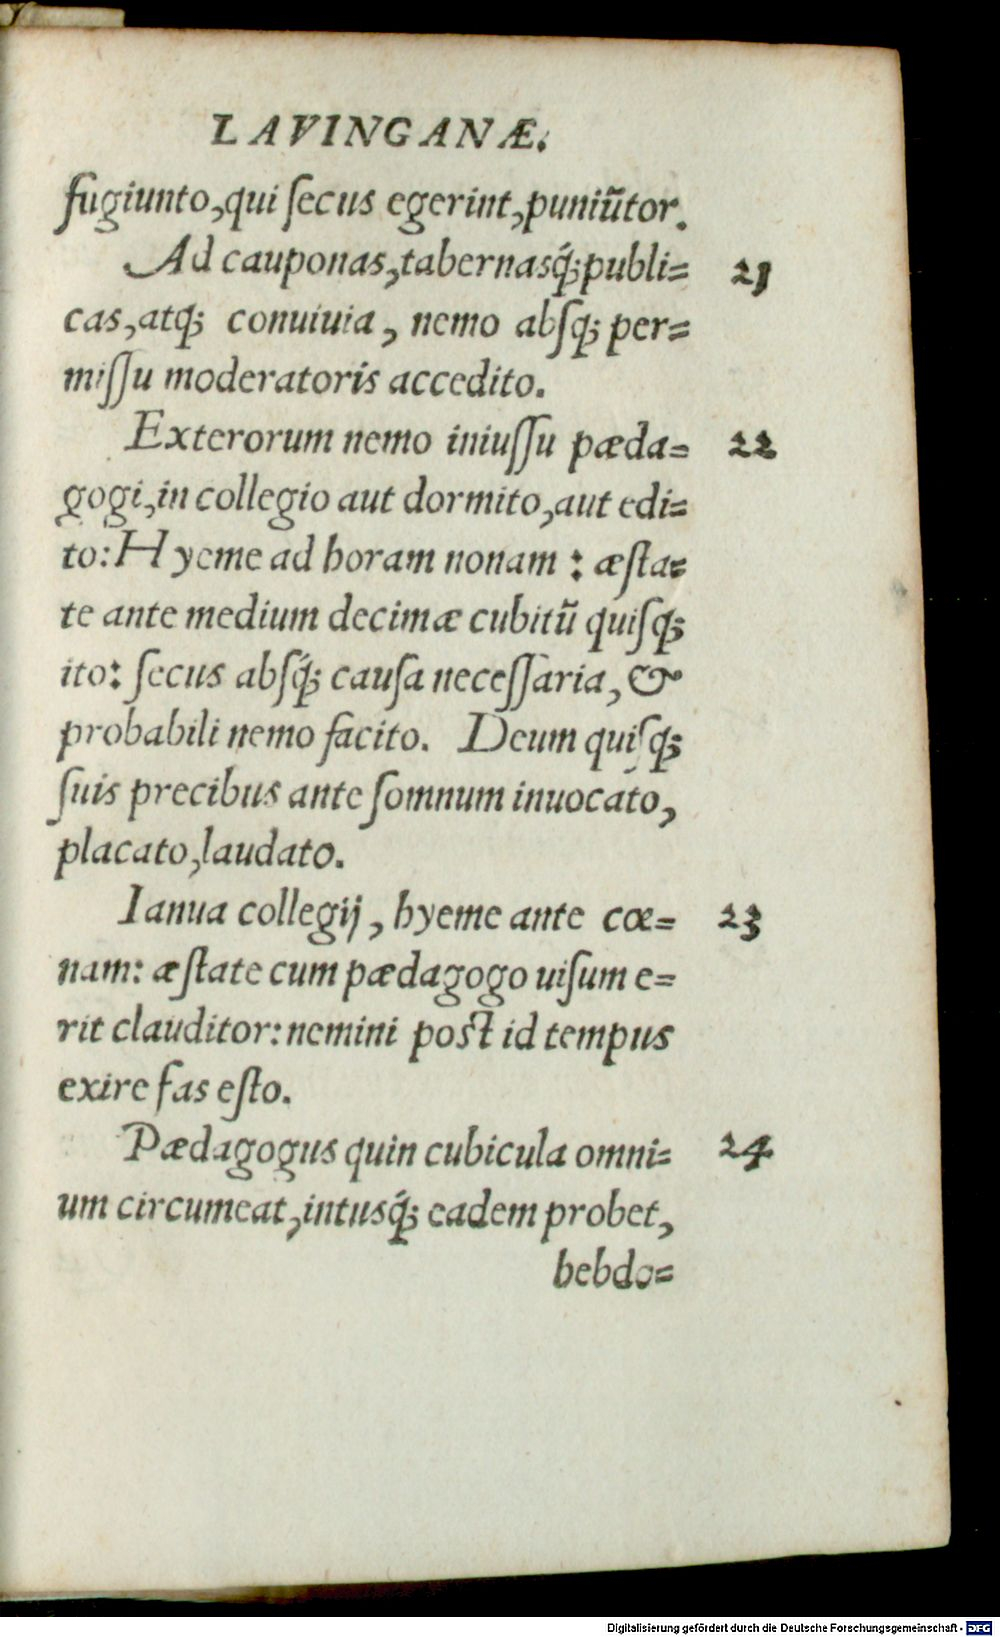 LAVINGANÆ.
fugiunto, qui ſecus egerint, puniũtor.
Ad cauponas, tabernasq́; publi= 21
cas, atq; conuiuia, nemo abſq; per=
miſſu moderatoris accedito.
Exterorum nemo iniuſſu pæda= 22
gogi, in collegio aut dormito, aut edi=
to: Hyeme ad horam nonam: æſta=
te ante medium decimæ cubitũ quiſq;
ito: ſecus abſq́; cauſa neceſſaria, &
probabili nemo facito. Deum quiſq;
ſuis precibus ante ſomnum inuocato,
placato, laudato.
Ianua collegij, hyeme ante cœ= 23
nam: æſtate cum pædagogo uiſum e=
rit clauditor: nemini poſt id tempus
exire fas eſto.
Pædagogus quin cubicula omni= 24
um circumeat, intusq́; eadem probet,
hebdo=
Digitalisierung gefördert durch die Deutsche Forschungsgemeinschaft - DFG